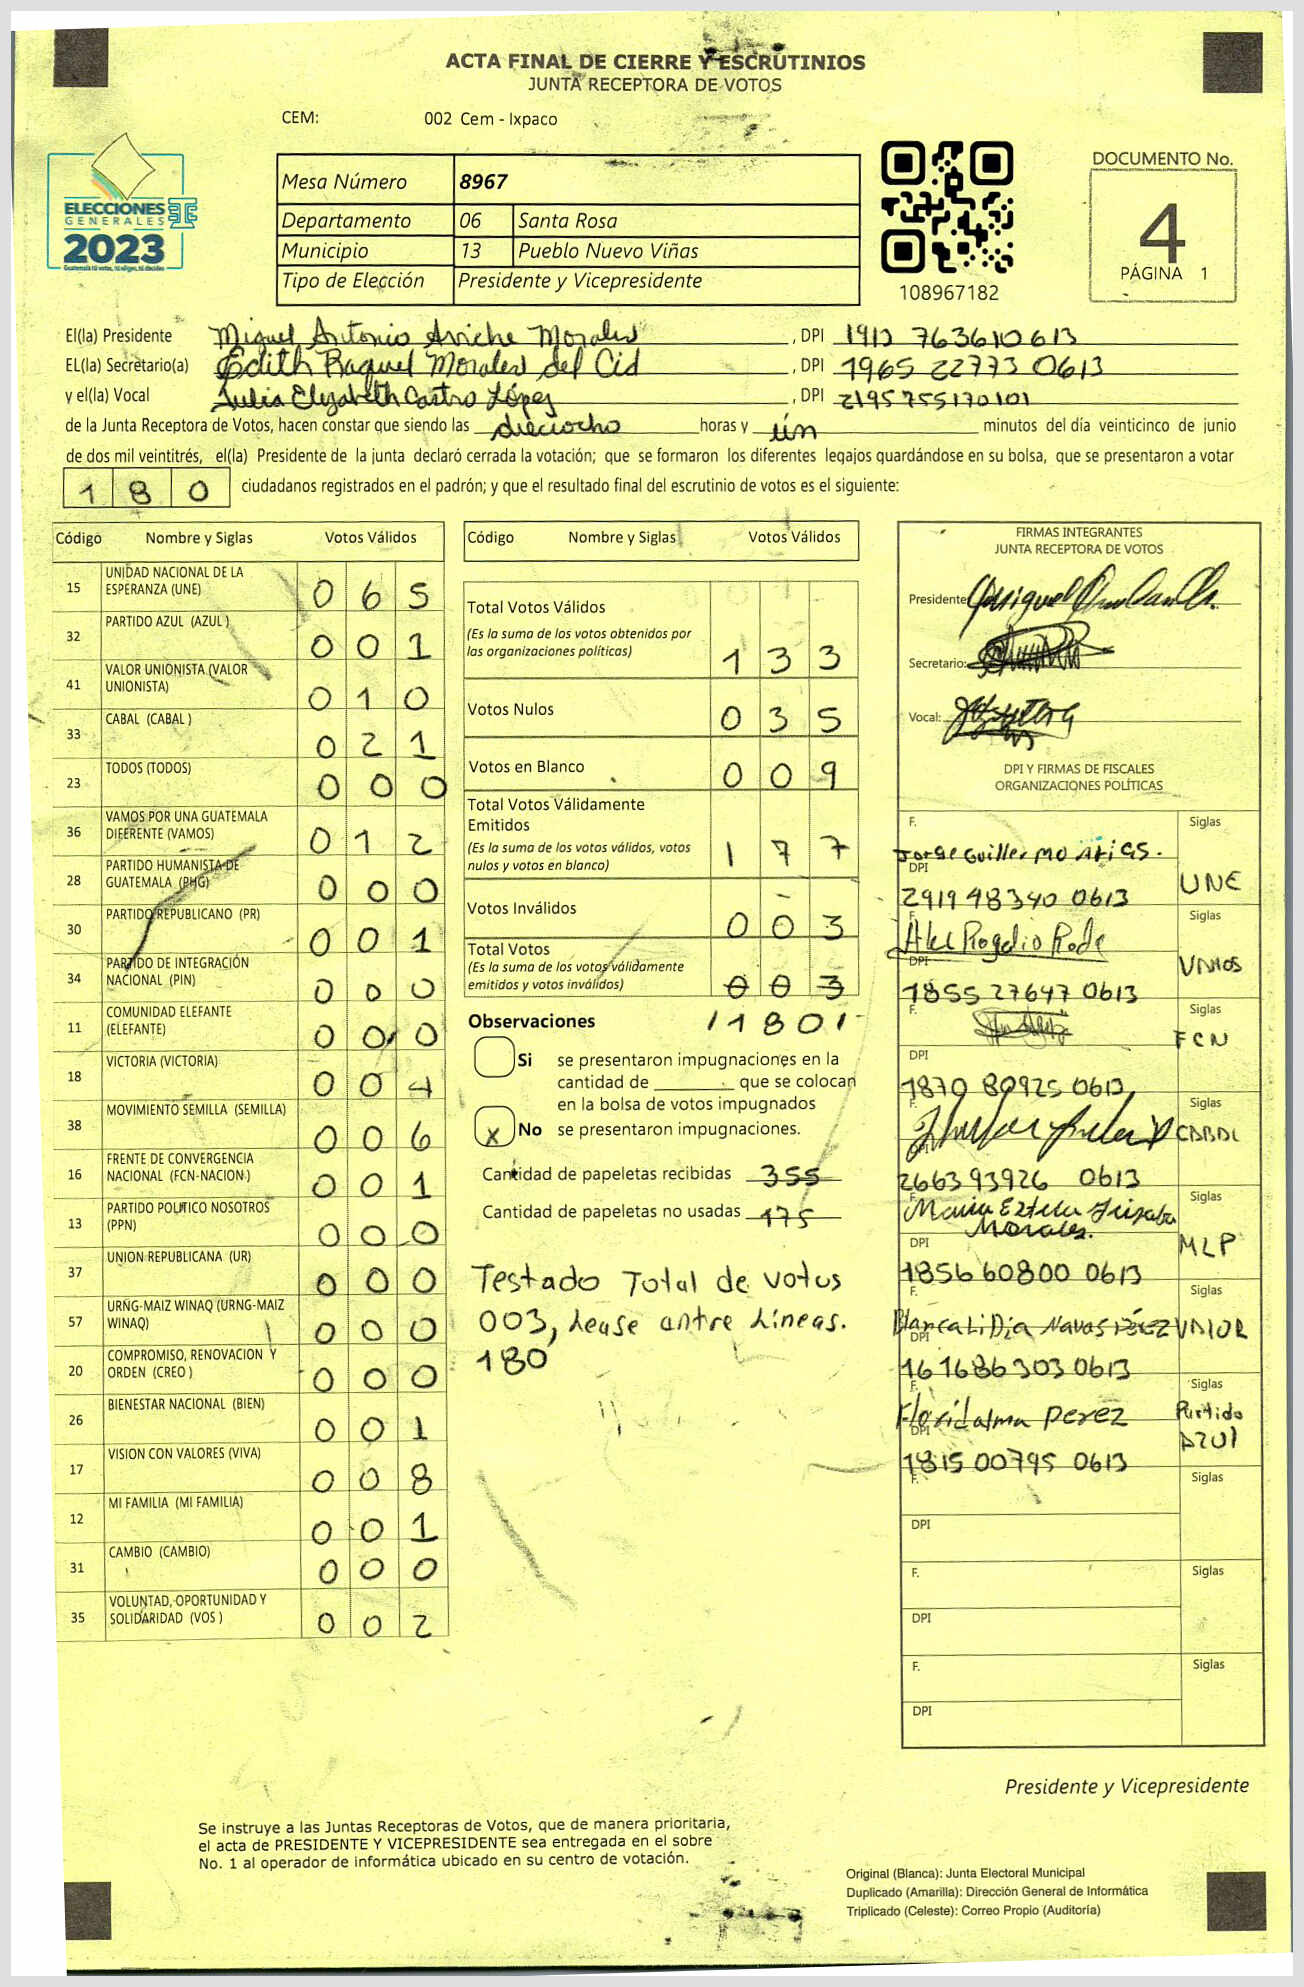 ACTA FINAL DE CIERRE Y ESCRUTINIOS
JUNTA RECEPTORA DE VOTOS
CEM: 002 Cem - Ixpaco
ELECCIONES
GENERALES
2023
Guatemala tú votas, tú eliges, tú decides
Mesa Número 8967
Departamento 06 Santa Rosa
Municipio 13 Pueblo Nuevo Viñas
Tipo de Elección Presidente y Vicepresidente
108967182
DOCUMENTO No.
4
PÁGINA 1
El(la) Presidente Miguel Antonio Morales, DPI 1912 763610613
EL(la) Secretario(a) Edith Raquel Morales del Cid, DPI 1965 22773 0613
y el(la) Vocal Julia Elizabeth Castro López, DPI 2195755170101
de la Junta Receptora de Votos, hacen constar que siendo las dieciocho horas y ún minutos del día veinticinco de junio
de dos mil veintitrés, el(la) Presidente de la junta declaró cerrada la votación; que se formaron los diferentes legajos guardándose en su bolsa, que se presentaron a votar
1 8 0 ciudadanos registrados en el padrón; y que el resultado final del escrutinio de votos es el siguiente:
Código Nombre y Siglas Votos Válidos
15 UNIDAD NACIONAL DE LA ESPERANZA (UNE) 0 6 5
32 PARTIDO AZUL (AZUL ) 0 0 1
41 VALOR UNIONISTA (VALOR UNIONISTA) 0 1 0
33 CABAL (CABAL ) 0 2 1
23 TODOS (TODOS) 0 0 0
36 VAMOS POR UNA GUATEMALA DIFERENTE (VAMOS) 0 1 2
28 PARTIDO HUMANISTA DE GUATEMALA (PHG) 0 0 0
30 PARTIDO REPUBLICANO (PR) 0 0 1
34 PARTIDO DE INTEGRACIÓN NACIONAL (PIN) 0 0 0
11 COMUNIDAD ELEFANTE (ELEFANTE) 0 0 0
18 VICTORIA (VICTORIA) 0 0 4
38 MOVIMIENTO SEMILLA (SEMILLA) 0 0 6
16 FRENTE DE CONVERGENCIA NACIONAL (FCN-NACION ) 0 0 1
13 PARTIDO POLITICO NOSOTROS (PPN) 0 0 0
37 UNION REPUBLICANA (UR) 0 0 0
57 URNG-MAIZ WINAQ (URNG-MAIZ WINAQ) 0 0 0
20 COMPROMISO, RENOVACION Y ORDEN (CREO ) 0 0 0
26 BIENESTAR NACIONAL (BIEN) 0 0 1
17 VISION CON VALORES (VIVA) 0 0 8
12 MI FAMILIA (MI FAMILIA) 0 0 1
31 CAMBIO (CAMBIO) 0 0 0
35 VOLUNTAD, OPORTUNIDAD Y SOLIDARIDAD (VOS ) 0 0 2
Código Nombre y Siglas Votos Válidos
Total Votos Válidos
(Es la suma de los votos obtenidos por
las organizaciones políticas) 1 3 3
Votos Nulos 0 3 5
Votos en Blanco 0 0 9
Total Votos Válidamente
Emitidos
(Es la suma de los votos válidos, votos
nulos y votos en blanco) 1 7 7
Votos Inválidos 0 0 3
Total Votos
(Es la suma de los votos válidamente
emitidos y votos inválidos) 0 0 3
Observaciones / 1 8 0 /
Si se presentaron impugnaciones en la
cantidad de ________ que se colocan
en la bolsa de votos impugnados
x No se presentaron impugnaciones.
Cantidad de papeletas recibidas 355
Cantidad de papeletas no usadas 175
Testado Total de votos
003, Lease entre Líneas.
180
FIRMAS INTEGRANTES
JUNTA RECEPTORA DE VOTOS
Presidente:
Secretario:
Vocal:
DPI Y FIRMAS DE FISCALES
ORGANIZACIONES POLÍTICAS
F. Siglas
Jorge Guillermo Arias.
DPI 2919 48340 0613 UNE
F. Siglas
Alex Rogelio Rode
DPI 1855 27647 0613 VAMOS
F. Siglas
FCN
DPI 1870 80925 0613
F. Siglas
CABAL
2663 93926 0613
F. Siglas
Maria Estela
Morales.
DPI 1856 60800 0613 MLP
F. Siglas
Blanca Lidia Navas Pérez VALOR
DPI 16 1686 303 0613
F. Siglas
Floridalma Perez Partido
AZUl
DPI 1815 00795 0613
F. Siglas
DPI
F. Siglas
DPI
F. Siglas
DPI
Presidente y Vicepresidente
Se instruye a las Juntas Receptoras de Votos, que de manera prioritaria,
el acta de PRESIDENTE Y VICEPRESIDENTE sea entregada en el sobre
No. 1 al operador de informática ubicado en su centro de votación.
Original (Blanca): Junta Electoral Municipal
Duplicado (Amarilla): Dirección General de Informática
Triplicado (Celeste): Correo Propio (Auditoría)